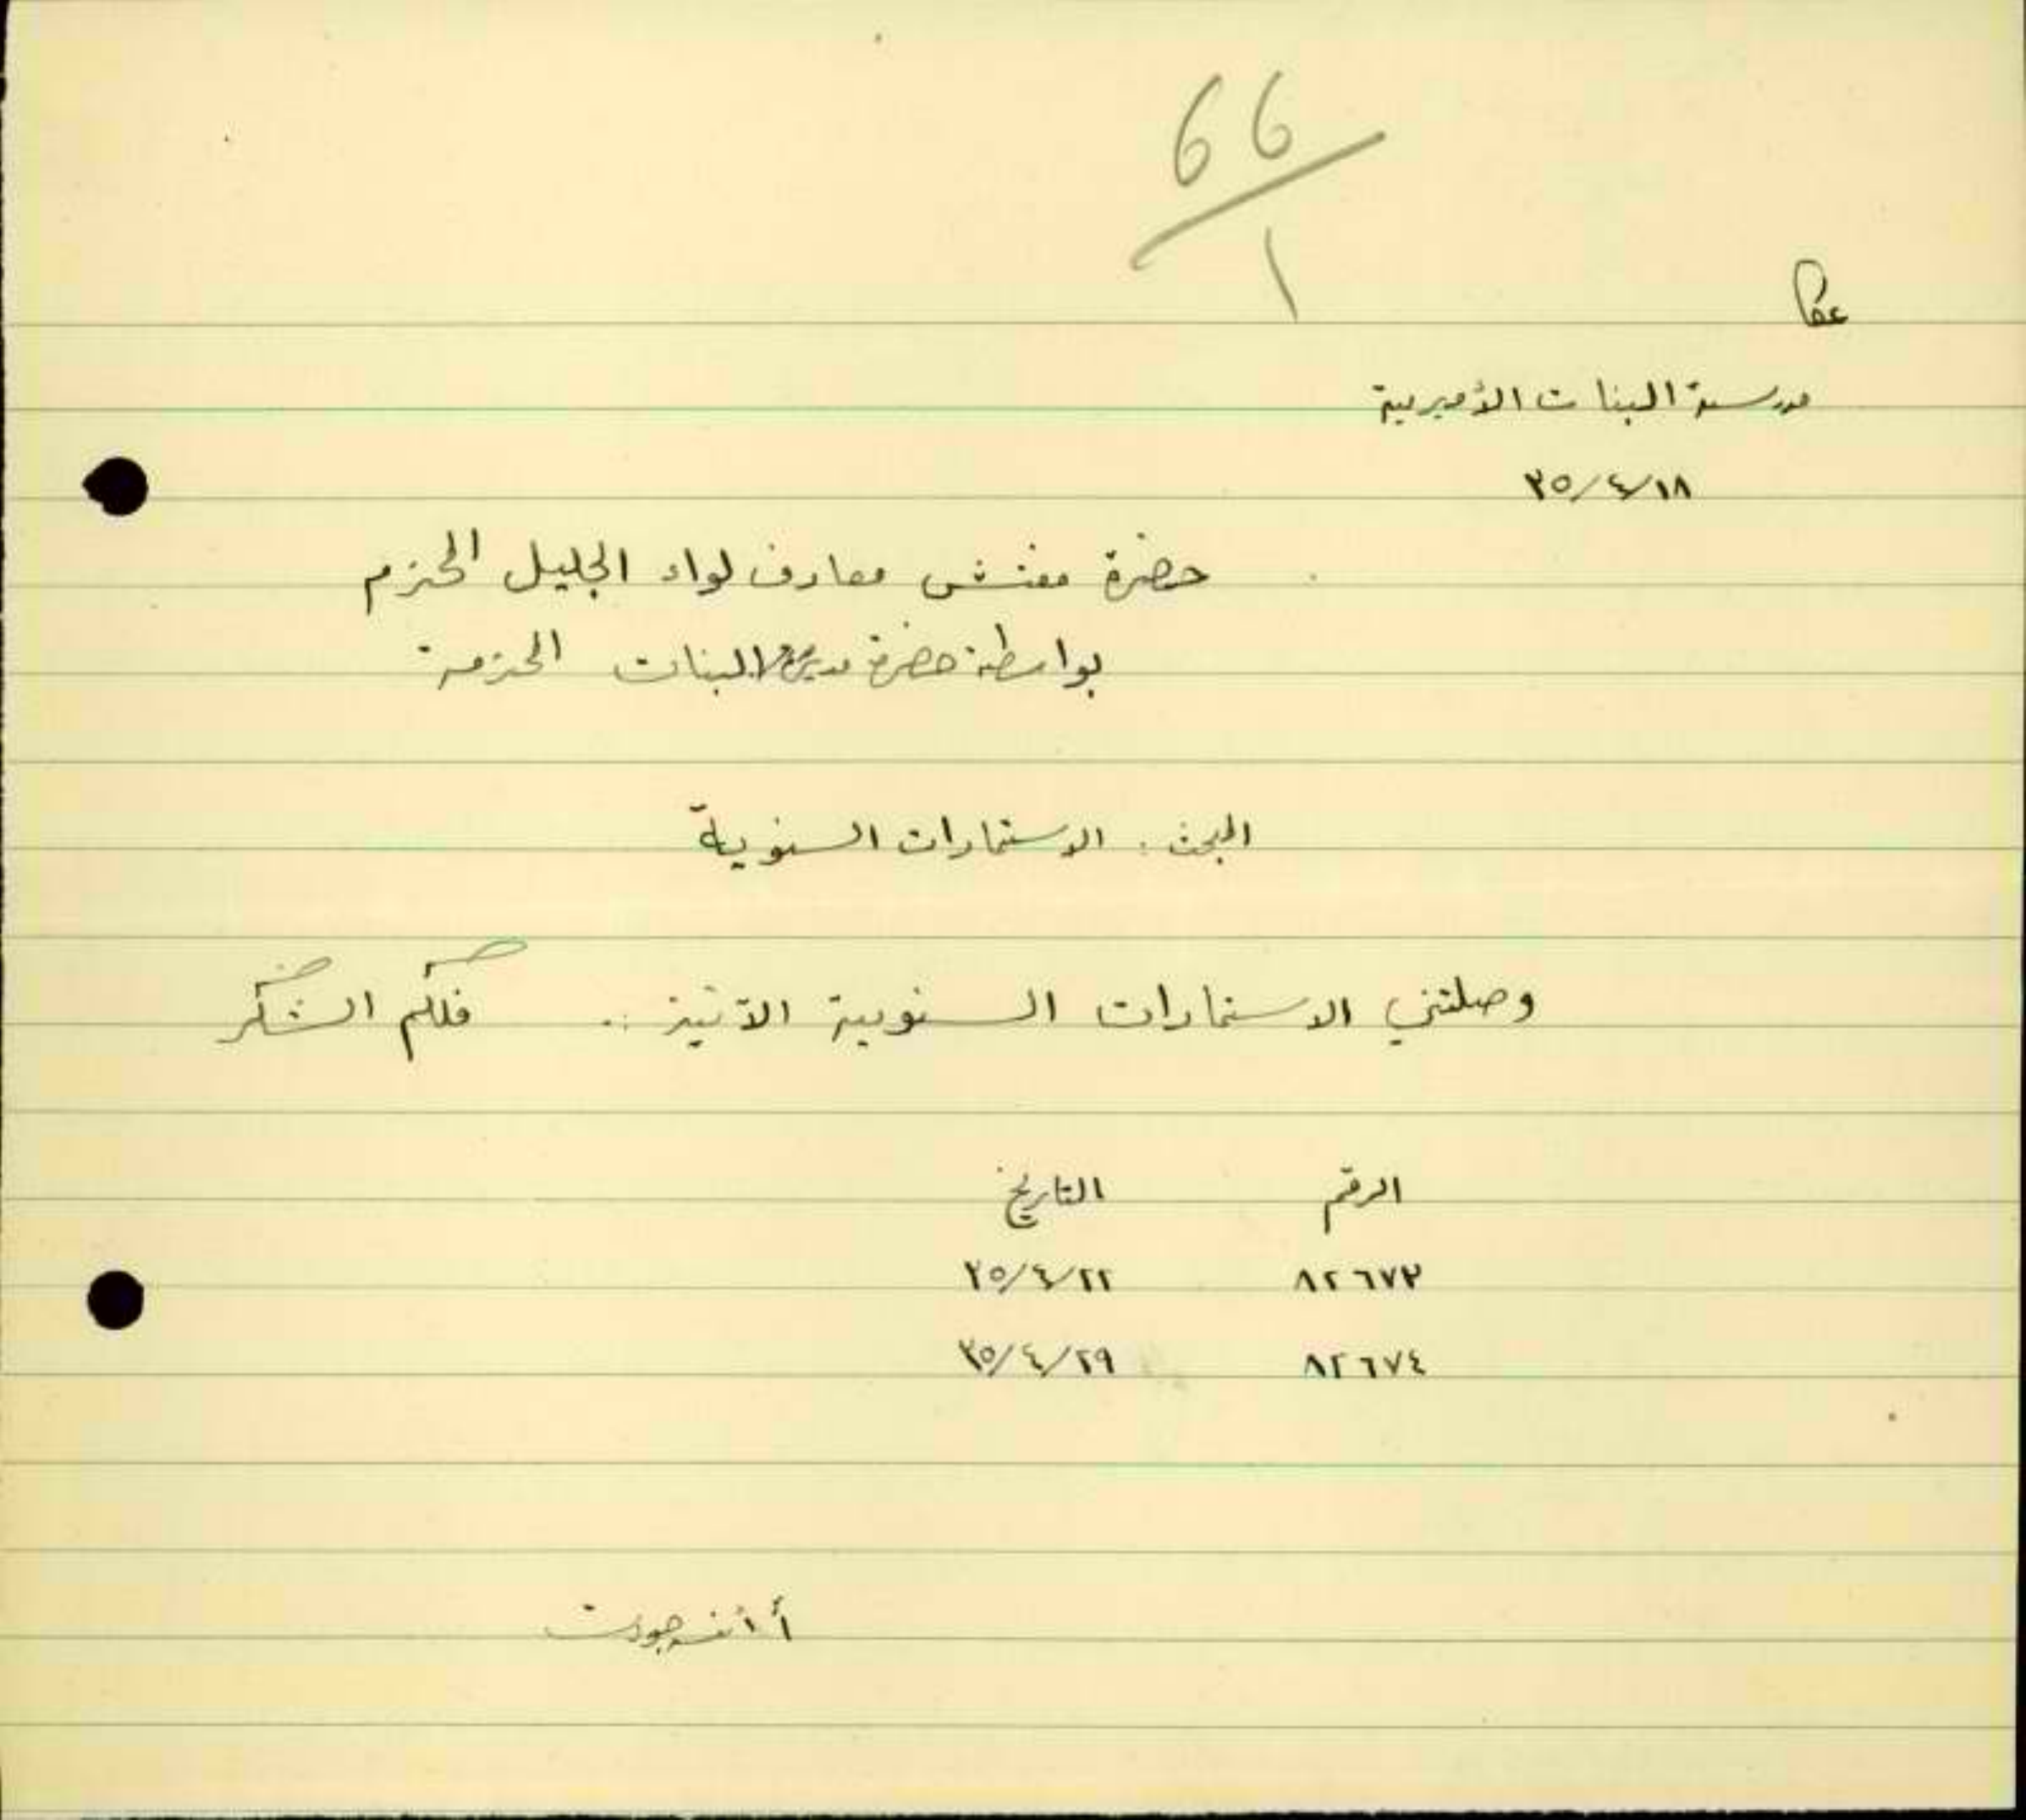 66
1
عكا
مدرسة البنات الأميرية
٣٥/٤/١٨
حضرة مفتش معارف لواء الجليل المحترم
بواسطة حضرة مديرة البنات المحترمة
المبحث: الاستمارات السنوية
وصلتني الاستمارات السنوية الآتية :. فلكم الشكر
الرقم التاريخ
٨٢٦٧٣ ٣٥/٤/٢٢
٨٢٦٧٤ ٣٥/٤/٢٩
جودت